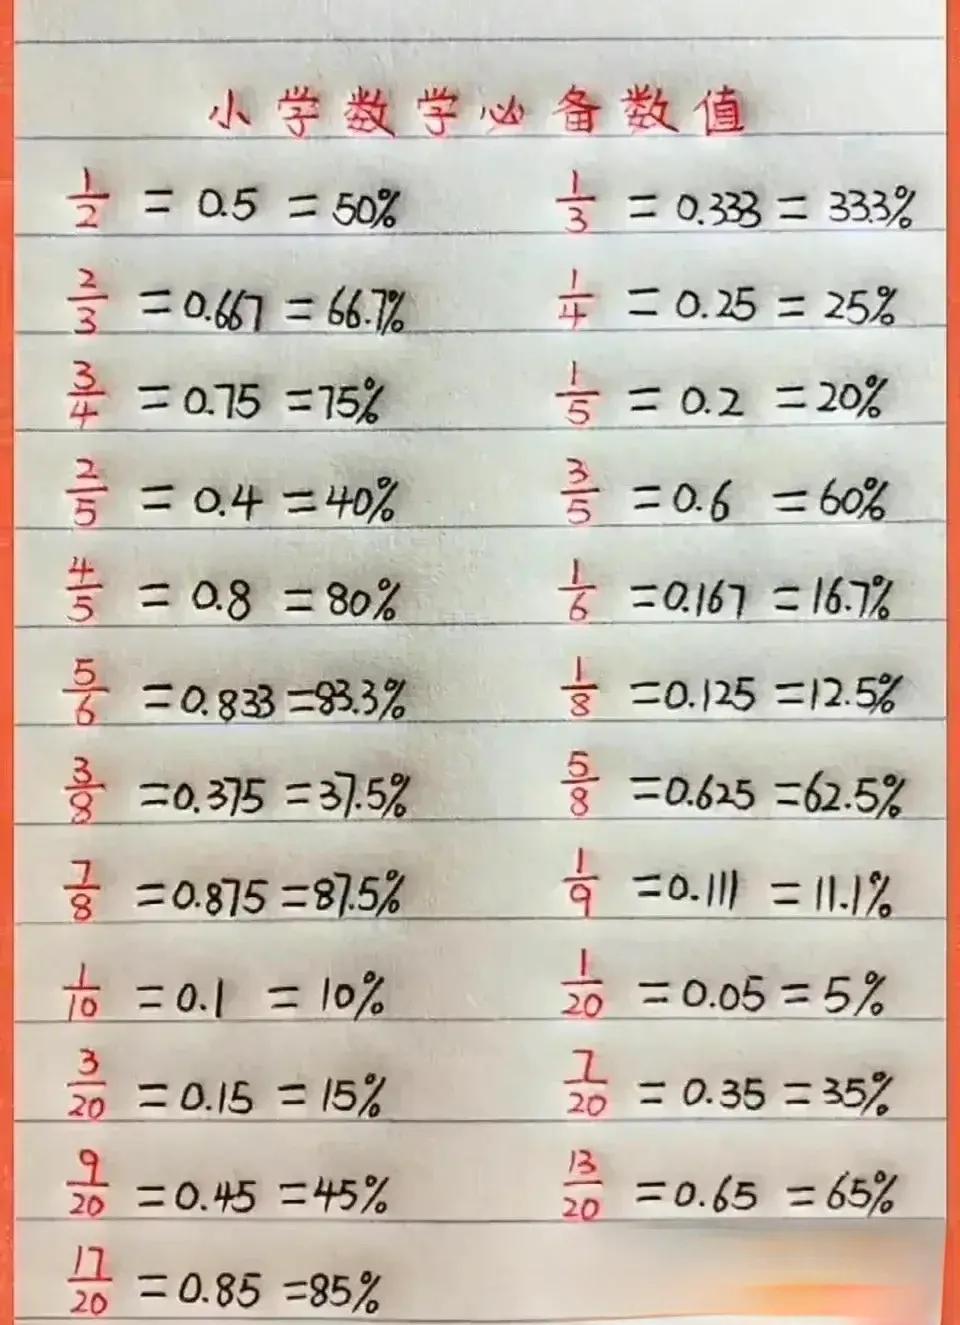 小学数学必备数值
1/2 = 0.5 = 50% 1/3 = 0.333 = 33.3%
2/3 = 0.667 = 66.7% 1/4 = 0.25 = 25%
3/4 = 0.75 = 75% 1/5 = 0.2 = 20%
2/5 = 0.4 = 40% 3/5 = 0.6 = 60%
4/5 = 0.8 = 80% 1/6 = 0.167 = 16.7%
5/6 = 0.833 = 83.3% 1/8 = 0.125 = 12.5%
3/8 = 0.375 = 37.5% 5/8 = 0.625 = 62.5%
7/8 = 0.875 = 87.5% 1/9 = 0.111 = 11.1%
1/10 = 0.1 = 10% 1/20 = 0.05 = 5%
3/20 = 0.15 = 15% 7/20 = 0.35 = 35%
9/20 = 0.45 = 45% 13/20 = 0.65 = 65%
17/20 = 0.85 = 85%